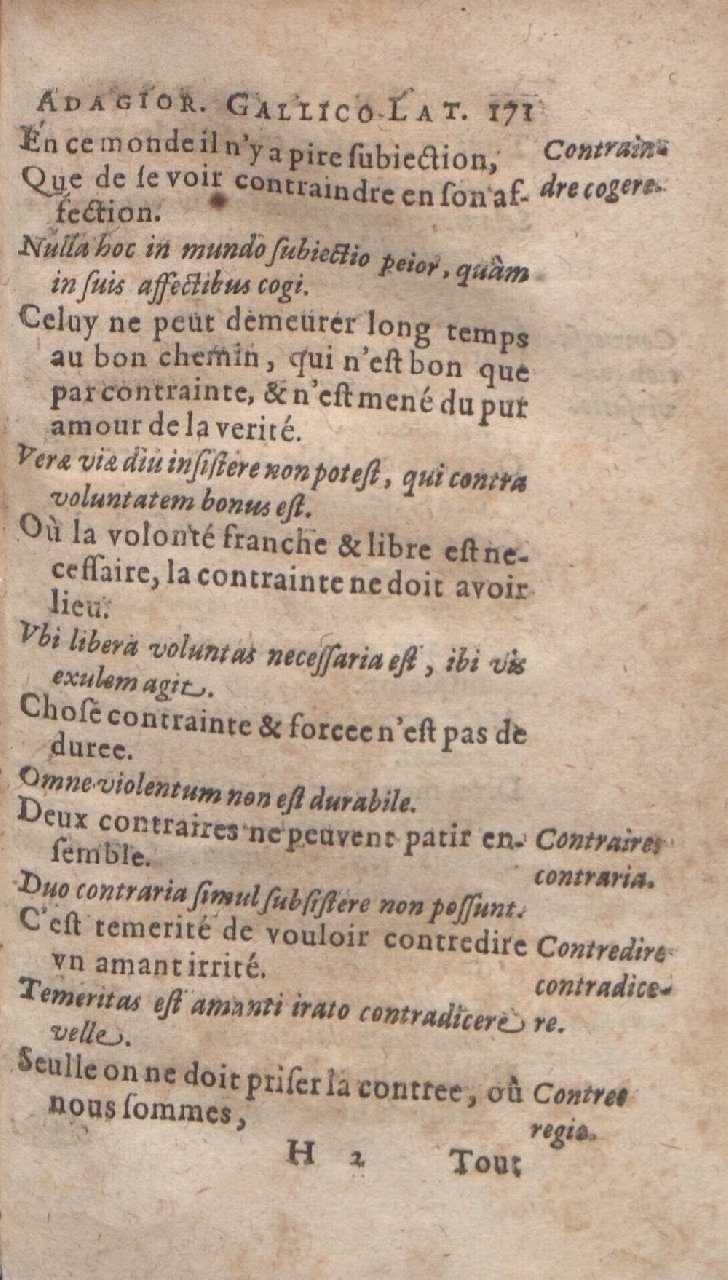 ADAGIOR. GALLICO LAT. 171
En ce monde il n'y a pire subiection,
Que de se voir contraindre en son af-
fection.
Contrain-
dre cogere.
Nulla hoc in mundo subiectio peior, quàm
in suis affectibus cogi.
Celuy ne peut demeurer long temps
au bon chemin, qui n'est bon que
par contrainte, & n'est mené du pur
amour de la verité.
Veræ viæ diu insistere non potest, qui contra
voluntatem bonus est.
Où la volonté franche & libre est ne-
cessaire, la contrainte ne doit avoir
lieu.
Vbi libera voluntas necessaria est, ibi vis
exulem agit.
Chose contrainte & forcee n'est pas de
duree.
Omne violentum non est durabile.
Deux contraires ne peuvent patir en-
semble.
Contraires
contraria.
Duo contraria simul subsistere non possunt.
C'est temerité de vouloir contredire
vn amant irrité.
Contredire
contradice-
re.
Temeritas est amanti irato contradicere
velle.
Seulle on ne doit priser la contree, où
nous sommes,
Contree
regio.
H 2 Tout